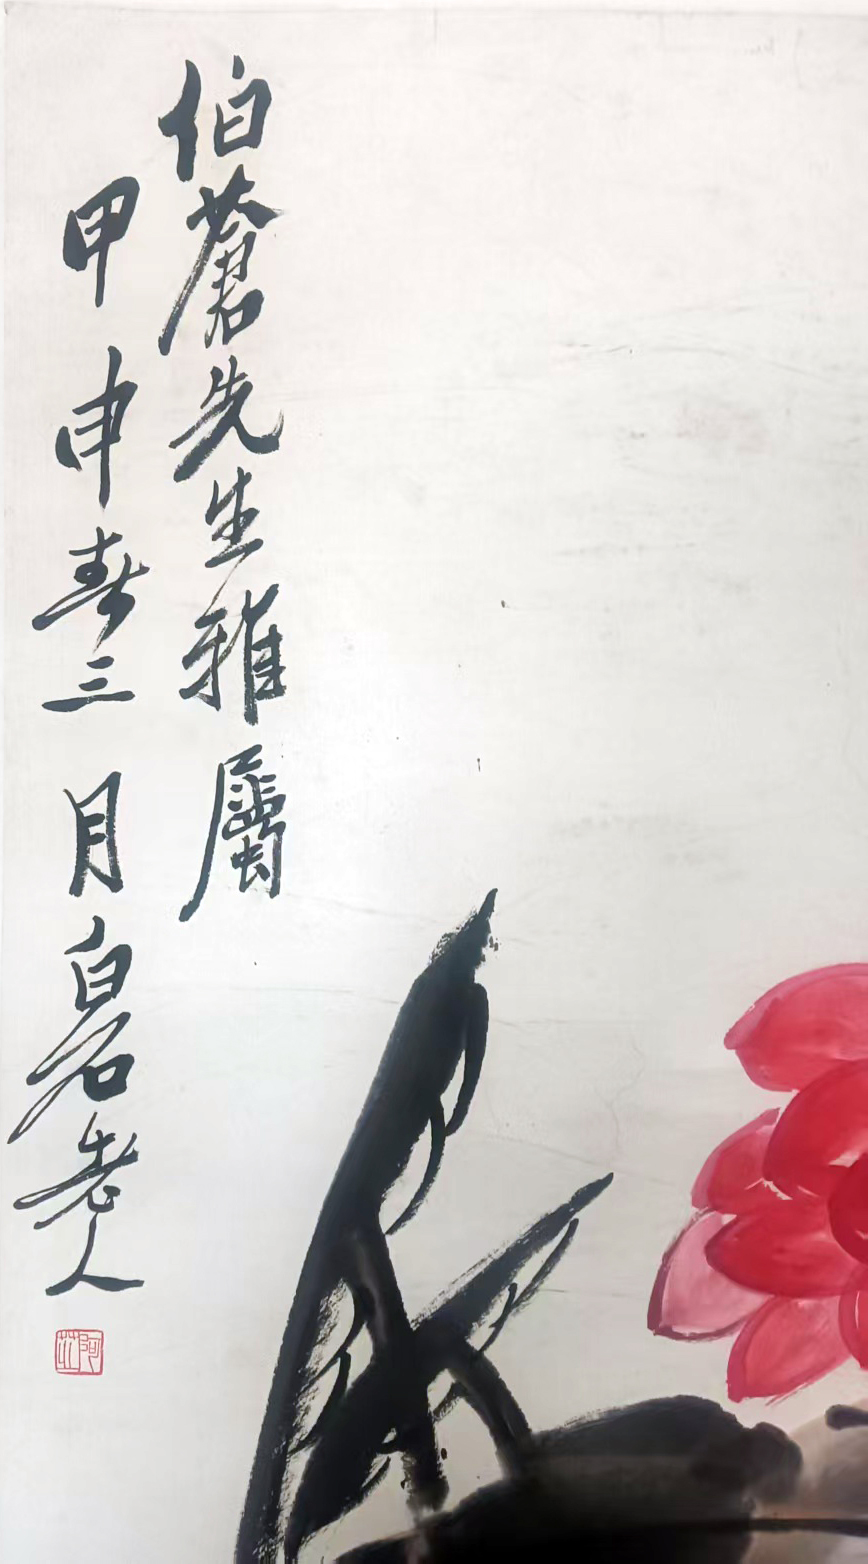 伯蒼先生雅屬
甲申春三月白石老人
阿芝